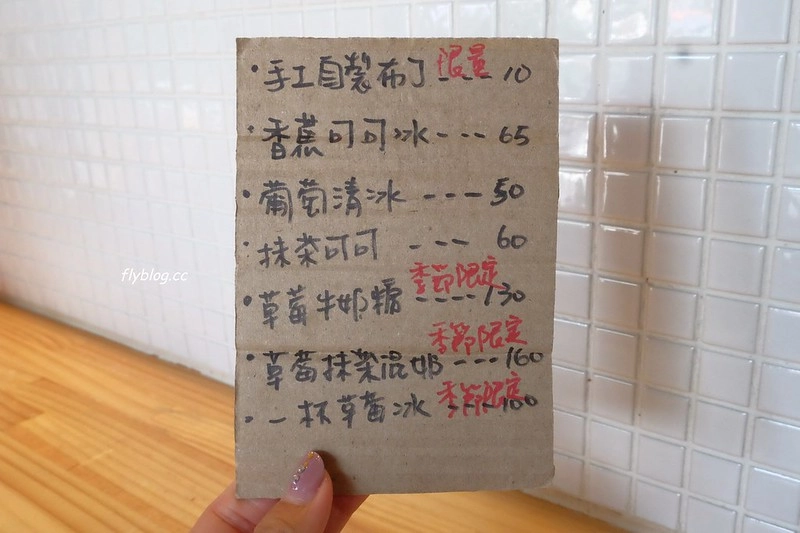 ・手工自製布丁 限量 --- 10
・香蕉可可冰 --- 65
・葡萄清冰 --- 50
・抹茶可可 --- 60
季節限定
・草莓牛奶糖 ---- 130
季節限定
・草莓抹茶混奶 --- 160
・一杯草莓冰 季節限定 --- 100
flyblog.cc